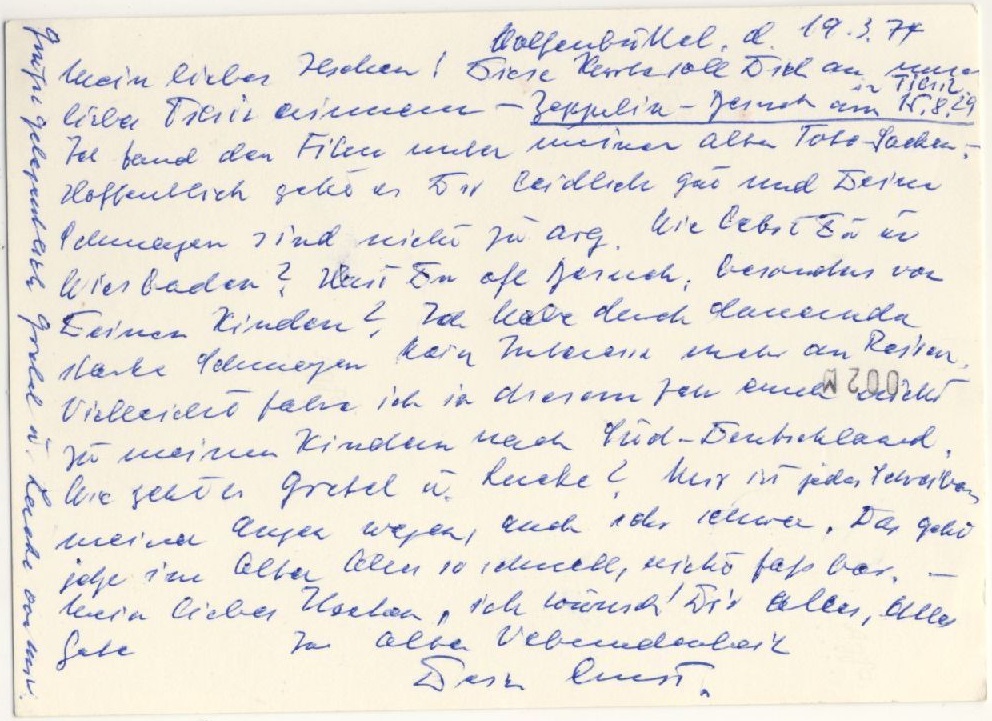 Wolfenbüttel, d. 19.3.74
Mein lieber ! Diese Karte soll Dich an unser
liebes Tilsit erinnern – Zeppelin-Besuch in Tilsit am 15.8.29
Ich fand den Film unter meinen alten Foto-Sachen.–
Hoffentlich geht es Dir leidlich gut und Deine
Schmerzen sind nicht zu arg. Wie lebst Du in
Wiesbaden? Hast Du oft Besuch, besonders von
Deinen Kindern? Ich habe durch dauernde
starke Schmerzen kein Interesse mehr an Reisen.
Vielleicht fahre ich in diesem Jahr auch nicht
zu meinen Kindern nach Süd-Deutschland.
Wie geht es Gretel u. ? Mir ist jedes Schreiben
meiner Augen wegen, auch sehr schwer. Das geht
jetzt im Alter alles so schnell, nicht faßbar. –
Mein lieber , ich wünsch' Dir alles, alles
Gute In alter Verbundenheit
Dein Ernst.
Grüße gelegentlich Gretel u. von mir.
M 200